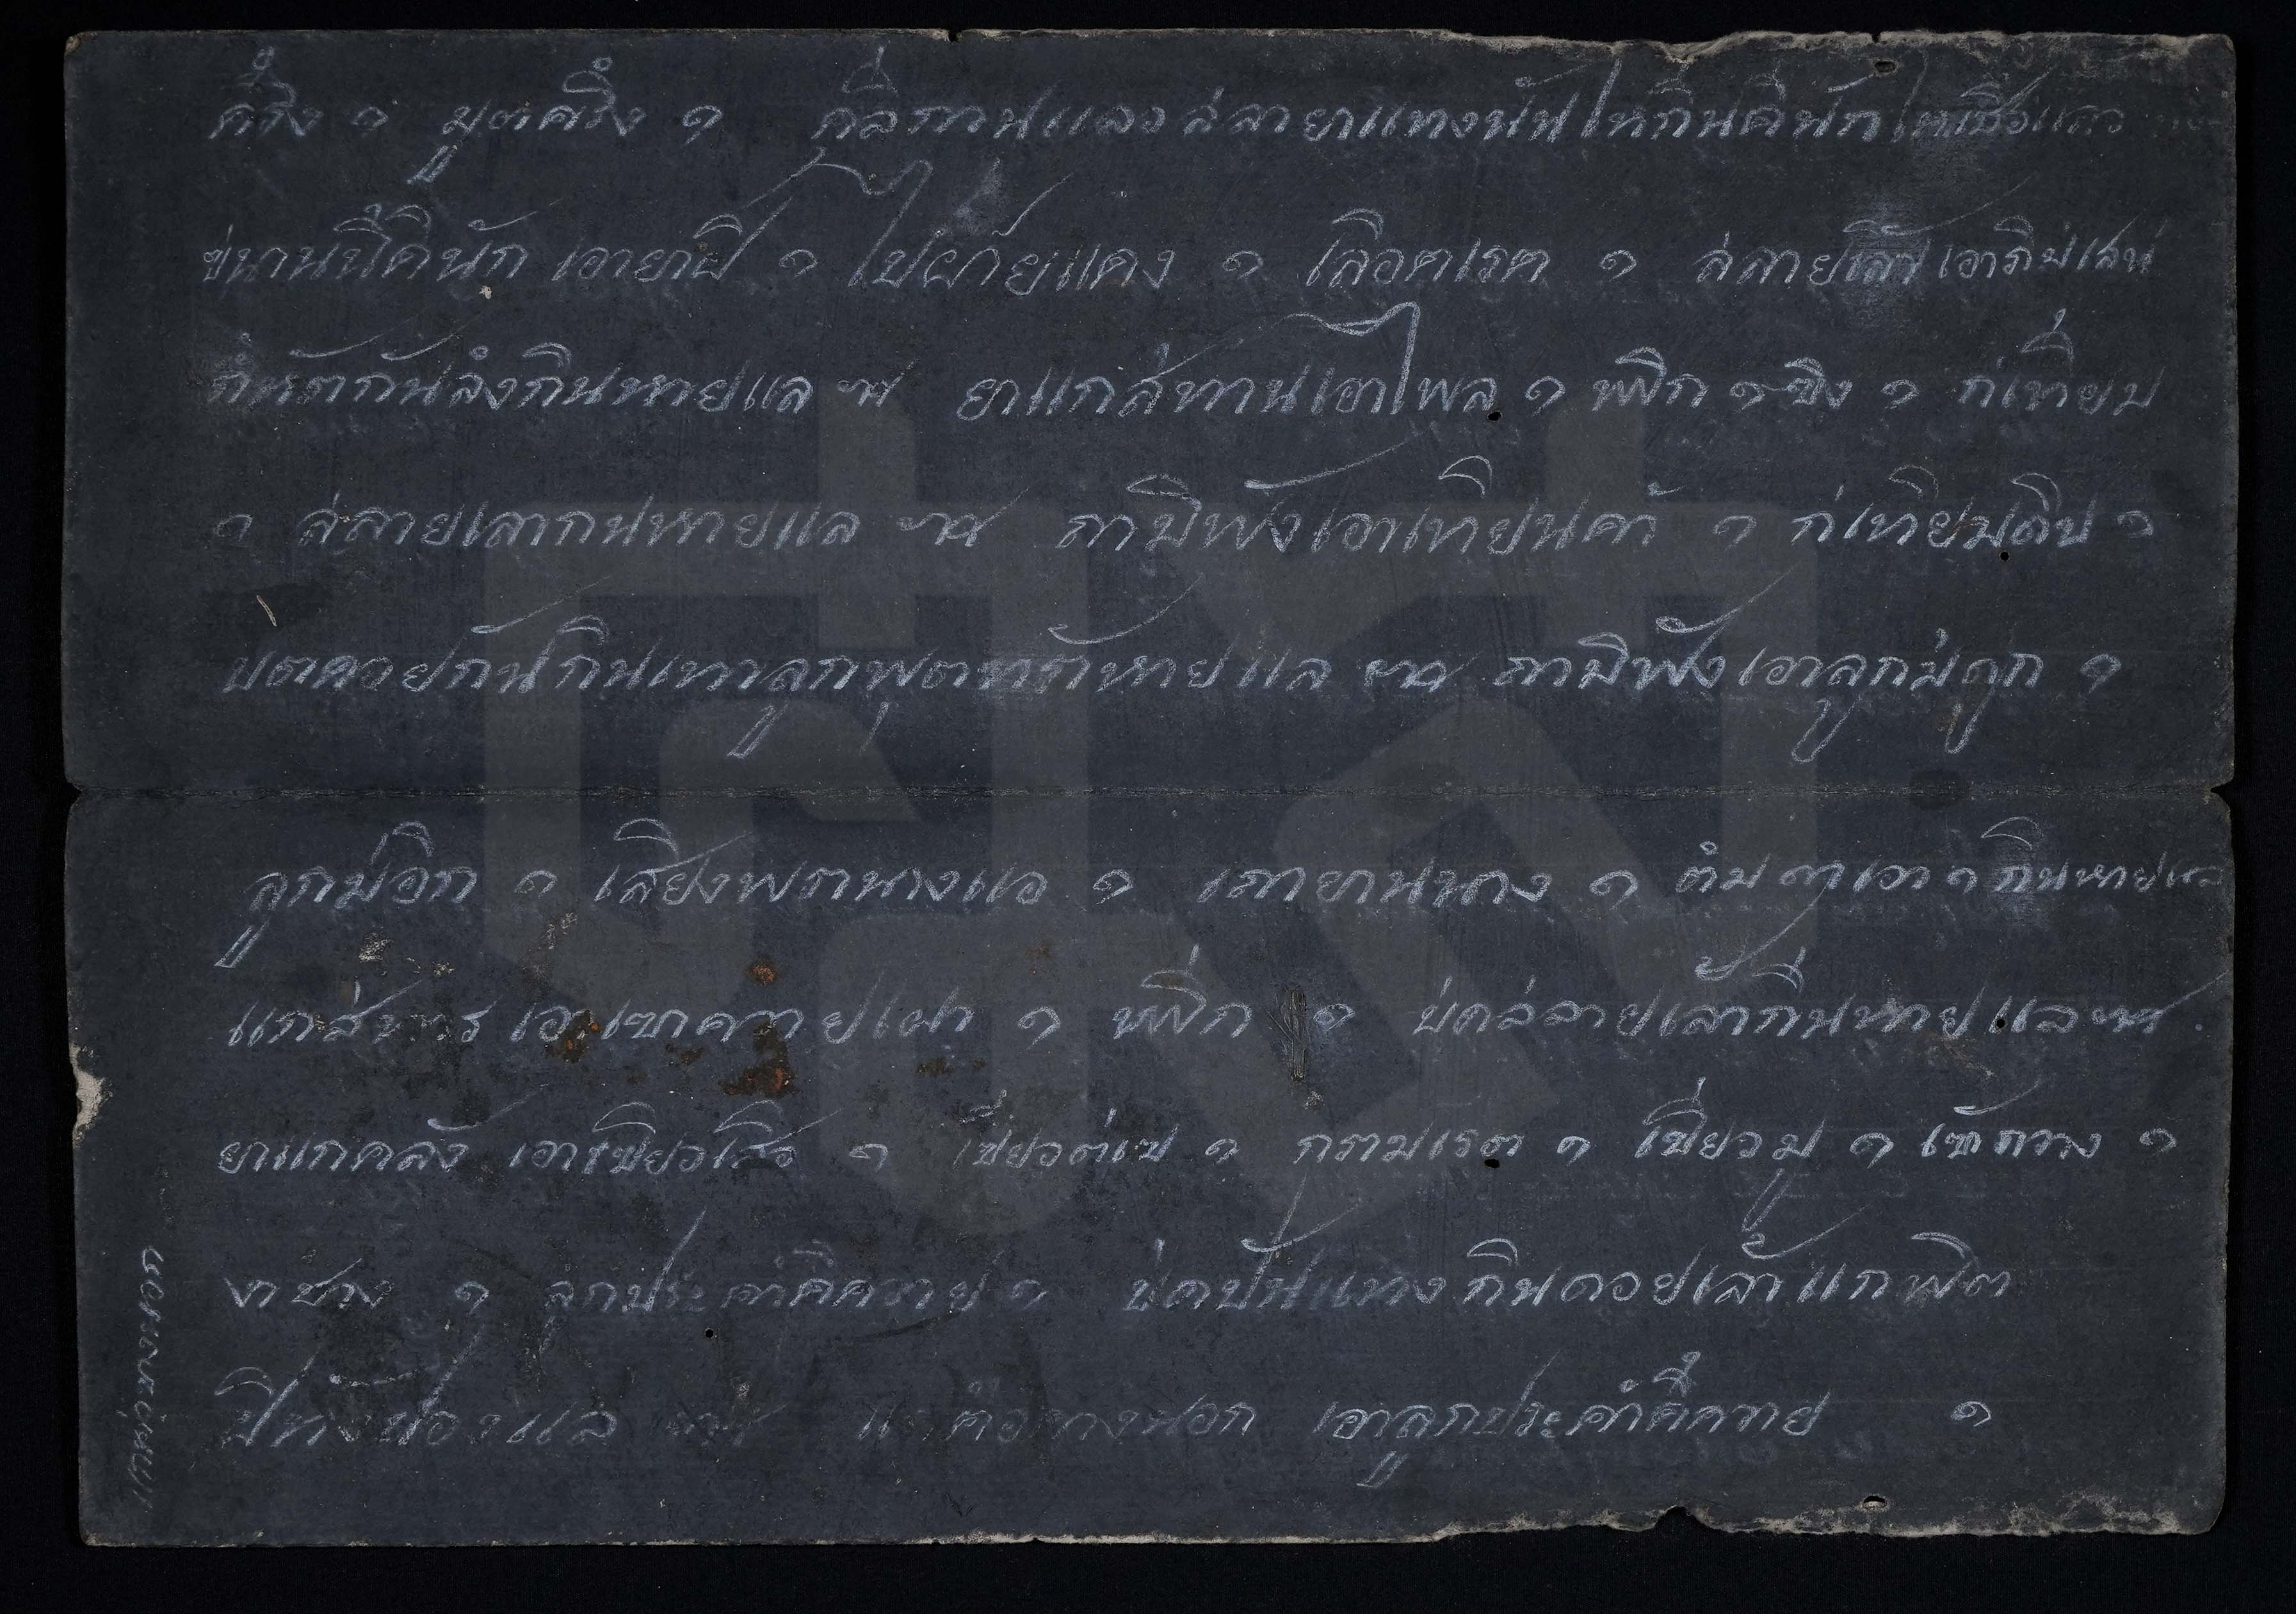 ครึ่ง ๑ มูตครึ่ง ๑ แลวสลายาแทงนั้นไห้กีนดีนัก
ขนานนี้ดีนัก เอายาฝี่ ๑ ไปฝ้ายแดง ๑ เลือดเรต ๑ ส่ลาย
กันลํงกีนหายแล ยาแกส่ทานเอาไพล ๑ พลิก ๑ ขีง ๑ ก่เทียม
๑ ส่ลายเลากนหายแล ถามิฟังเอาเทียนดำ ๑ ก่เทียมดิบ ๑
บตดวยกันกินเทาลูกพุตทราหายแล ถามิฟังเอาลูกม่ดูก ๑
ลูกม่อีก ๑ เสียงพรานางแอ ๑ เลายานนาง ๑ ต้ม เอา ๑ กินหายแล
แกส่ทาร เอาเขาควายเผา ๑ พลิก ๑ บ่ดล่ลายเล้ากีนหายแล
ยาแกคลัง เอาเขียวเสือ ๑ เขี้ยวต่เข ๑ กรามเรต ๑ เขี่ยวมู ๑ เข้ากวาง ๑
งาช้าง ๑ ลูกประคำดีควาย ๑ บ่ดปั้นแทงกินดอยเล้าแกพิต
ฝีทั้งปวงแล เอาลูกประคำดีควาย ๑